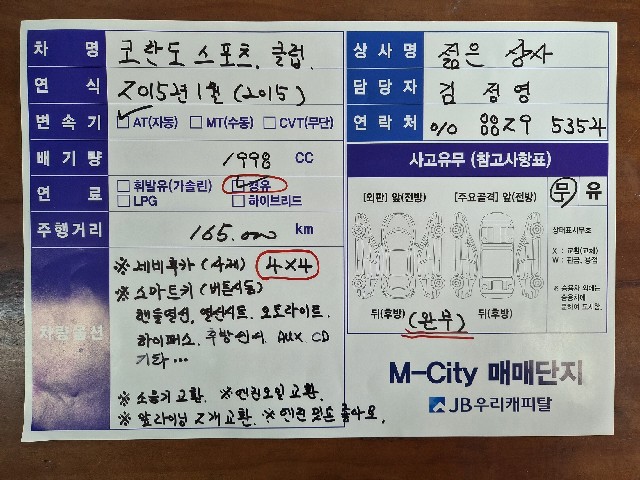 차 명 코란도 스포츠. 클럽.
연 식 2015년 1월 (2015)
변 속 기 AT(자동) MT(수동) CVT(무단)
배 기 량 1998 CC
연 료 휘발유(가솔린) 경유
LPG 하이브리드
주행거리 165.000 km
차량옵션
※ 네비후카 (사제) 4X4
※ 스마트키 (버튼시동)
핸들열선, 열선시트. 오토라이트.
하이패스. 후방센서. AUX CD
기타...
※ 소음기 교환. ※ 엔진오일 교환.
※ 앞라이닝 2개 교환. ※ 엔진 밋숀 좋아요.
상 사 명 젊은 상사
담 당 자 김 정 영
연 락 처 010 8829 5354
사고유무 (참고사항표)
[외판] 앞(전방) [주요골격] 앞(전방)
뒤(후방) 뒤(후방)
(완무)
무 유
상태표시부호
X : 교환(교체)
W : 판금, 용접
※ 승용차 외에는
승용차에
준하여 표시함.
M-City 매매단지
JB우리캐피탈